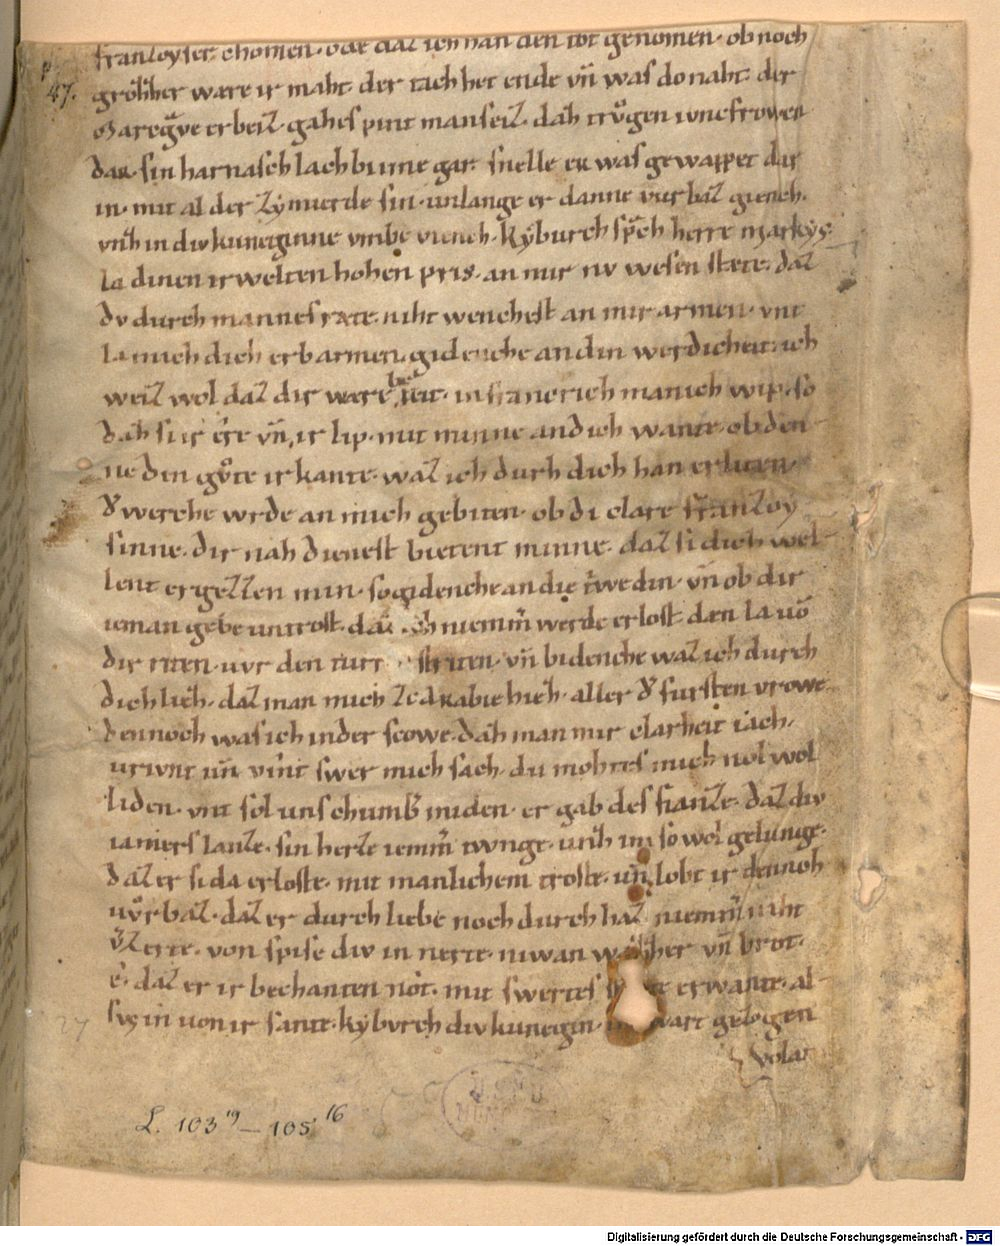 franzoyser chomen · ode daz ich han den tot genomen · ob noch
47.
grozzher ware ir maht · der tach het ende vn̄ was do naht · der
Maregͣve erbeiz · gahes pint man seiz · dah trͦgen iuncfrowen
dar · sin harnasch lach bi ime gar · snelle er was gewappet dar
in · mit al der zymierde sin · unlange er danne vurbaz giench ·
vnzh in div kuneginne vmbe viench · kẏburch spͣch herre markys ·
La dinen irwelten hohen pris · an mir nv wesen stæte · daz
dv durch mannes ræte · niht wenchest an mir armen · vnt
la mich dich erbarmen · gidenche an din werdicheit · ich
weiz wol daz dir were beͬeit · in francrich manich wip · so
daz si ir ere vn̄ ir lip · mit minne an dich wante · ob den
ne din gͦte ir kante · waz ich durh dich han erliten
d͛ werche wrde an mich gebiten · ob di clare franzoy
sinne · dir nah dienest bietent minne · daz si dich wel
lent ergezzen min · so gidenche an die tͥwe din · vn̄ ob dir
ieman gebe untrost · daz ich niemm̄ werde erlost · den la vō
dir riten · uvr den turc striten · vn̄ bidenche waz ich durch
dich liez · daz man mich ze arabie hiez · aller d͛ fursten vrowe
dennoch was ich in der scowe · dah man mir clarheit iach ·
urivnt un̄ vint swer mich sach · du mohtes mich nol wol
liden · vnt sol uns chumb͛ miden · er gab des fianze · daz div
iamers lanze · sin herze iemm̄ twnge · unzh im so wol gelunge ·
daz er si da erloste · mit manlichem troste · un̄ lobt ir dennoh
uvrbaz · daz er durch liebe noch durch haz niemm̄ niht
v͛zerte · von spise div in nerte · niwan wazzher vn̄ brot ·
e · daz er ir bechanten not · mit swertes erwante · al
sus in von ir sante · kẏburch div kunegin · wart gezogen
volat
27
L. 103¹⁹ — 105¹⁶
Digitalisierung gefördert durch die Deutsche Forschungsgemeinschaft - DFG